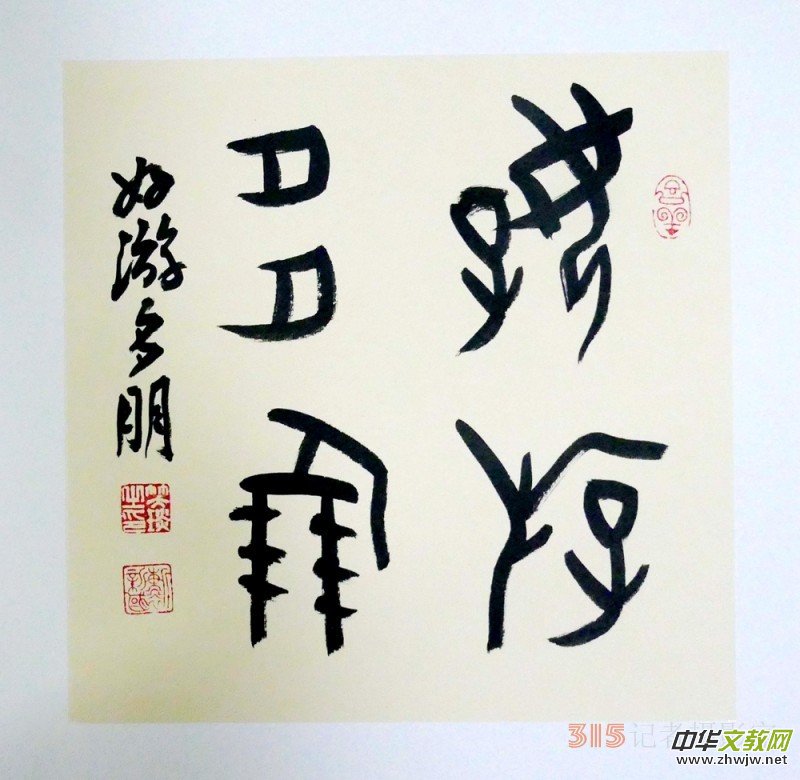 好游
多朋
好游多朋
315记者摄影家
中华文教网
www.zhwjw.net